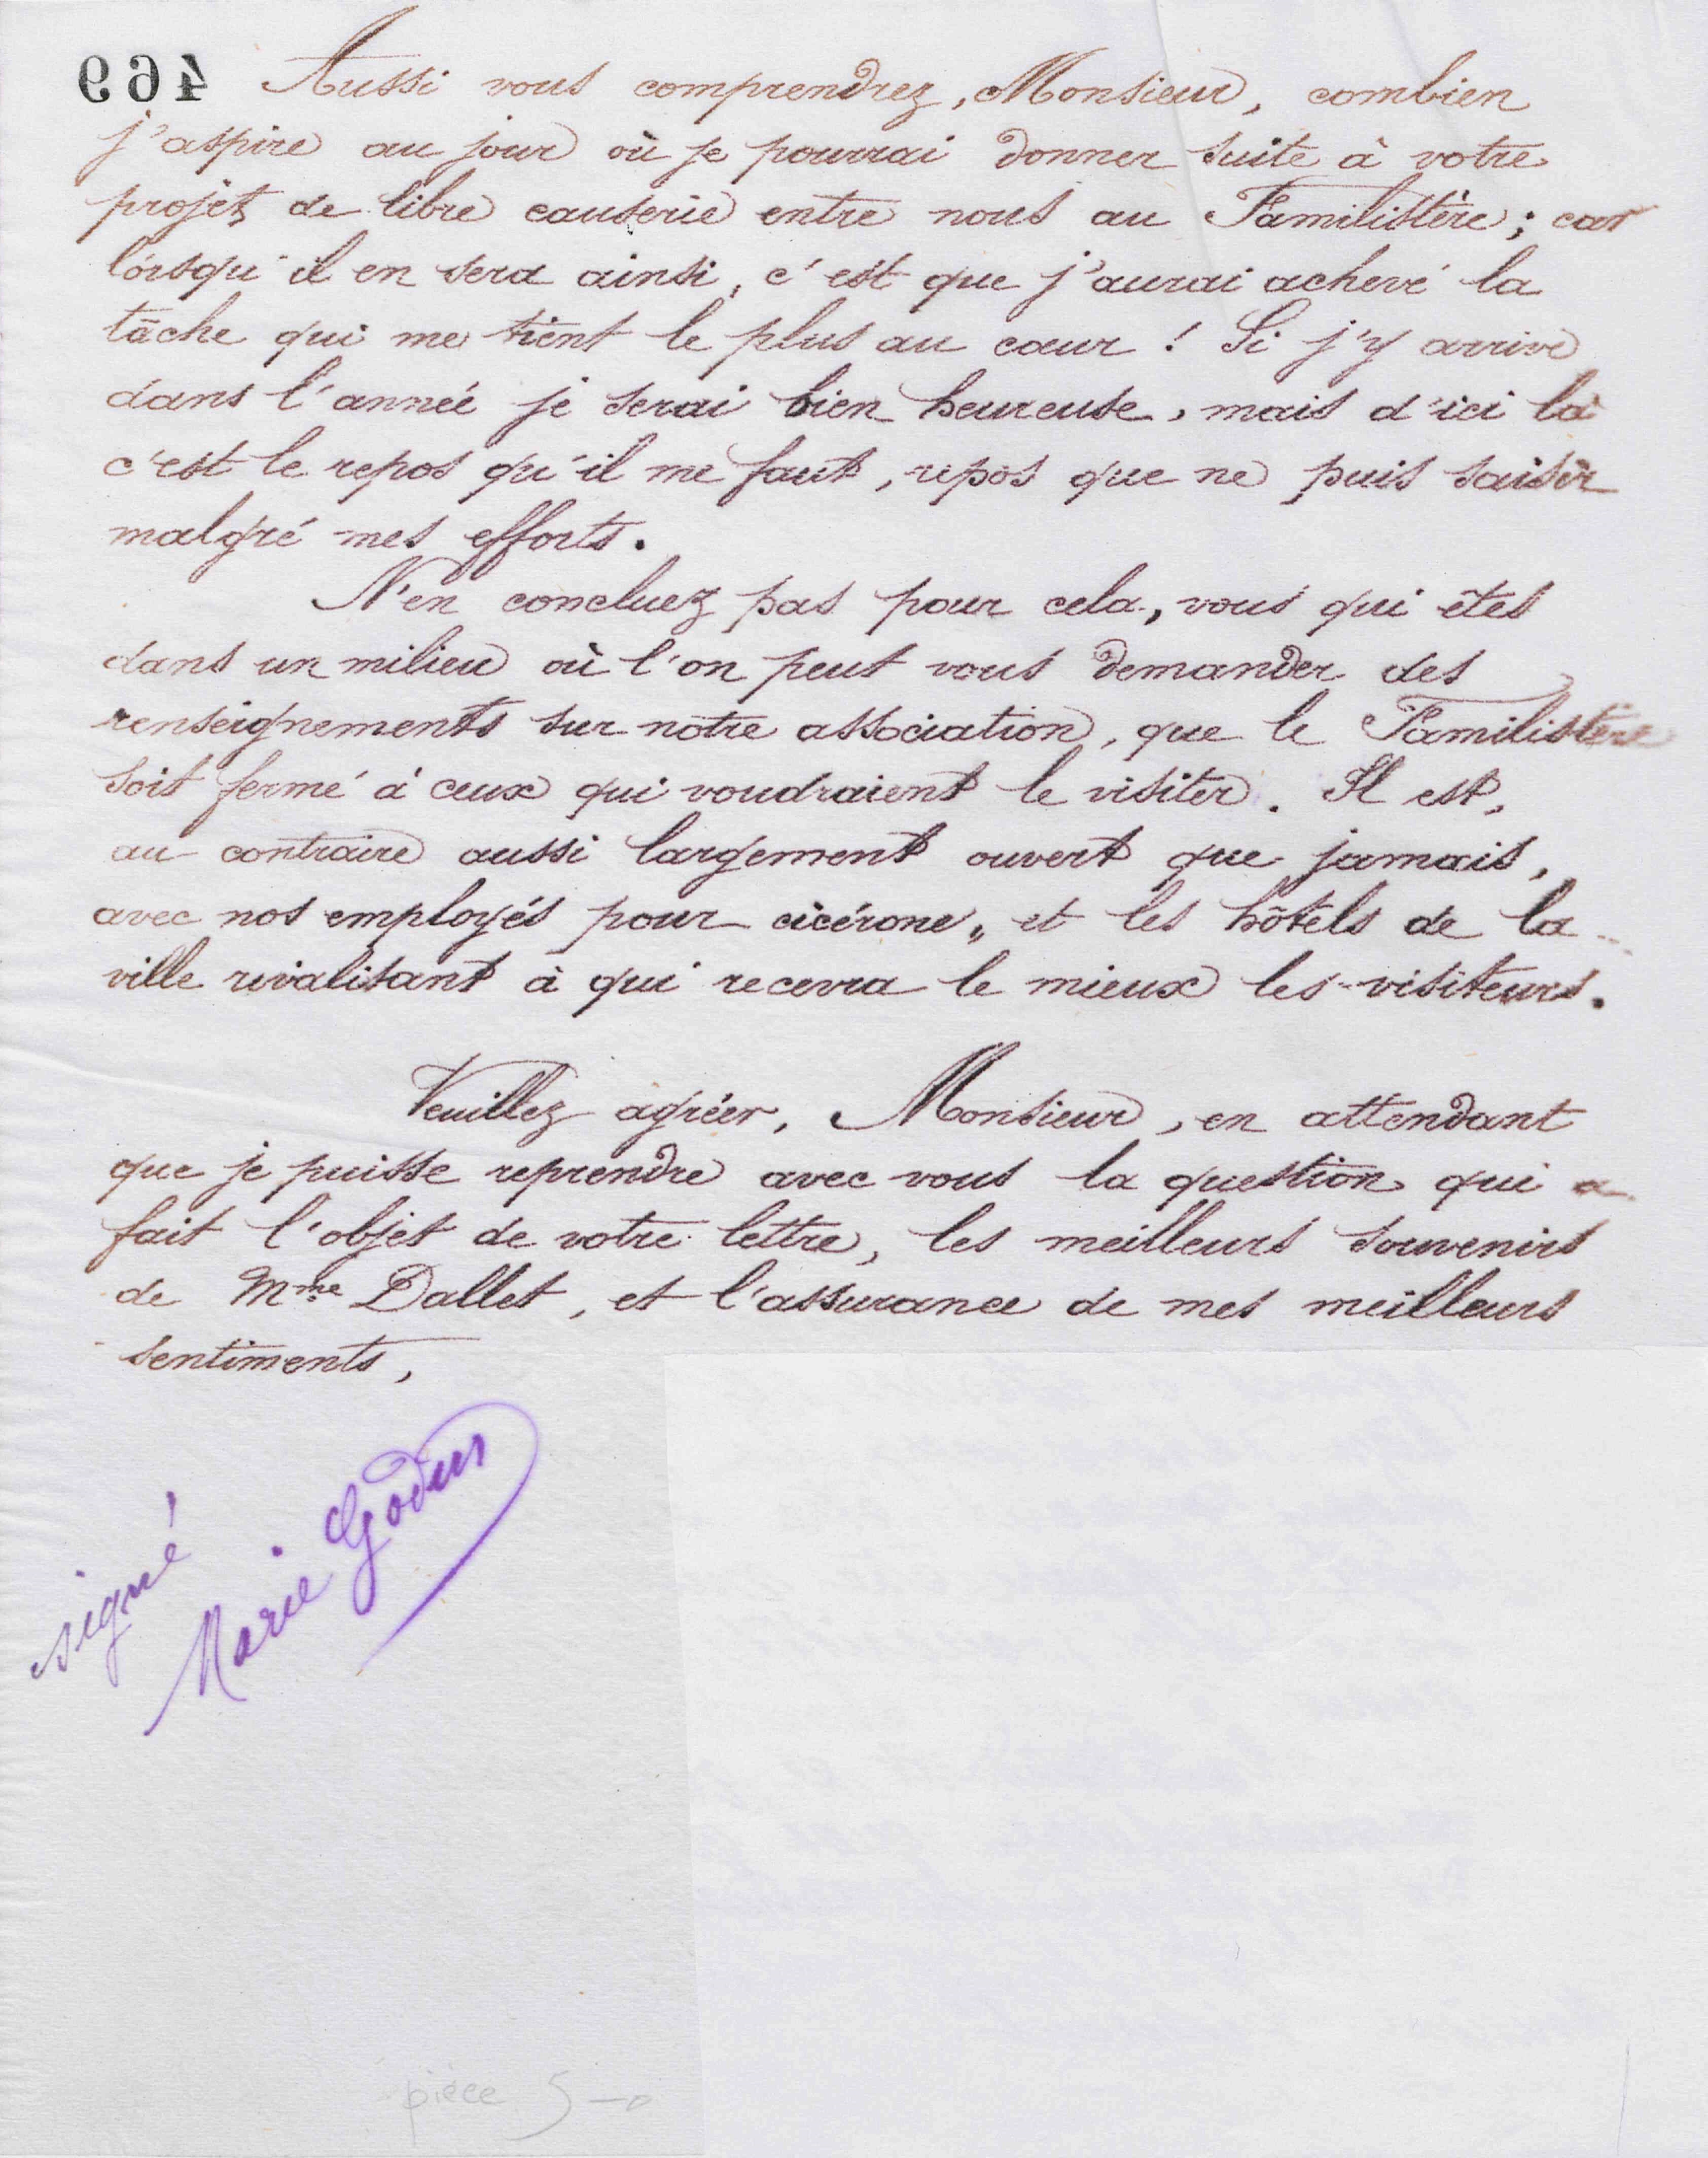 469 Aussi vous comprendrez, Monsieur, combien
j'aspire au jour où je pourrai donner suite à votre
projet de libre causerie entre nous au Familistère; car
lorsqu'il en sera ainsi, c'est que j'aurai achevé la
tâche qui me tient le plus au cœur ! Si j'y arrive
dans l'année je serai bien heureuse, mais d'ici là
c'est le repos qu'il me faut, repos que ne puis saisir
malgré mes efforts.
N'en concluez pas pour cela, vous qui êtes
dans un milieu où l'on peut vous demander des
renseignements sur notre association, que le Familistère
soit fermé à ceux qui voudraient le visiter. Il est,
au contraire aussi largement ouvert que jamais,
avec nos employés pour cicérone, et les hôtels de la
ville rivalisant à qui recevra le mieux les visiteurs.
Veuillez agréer, Monsieur, en attendant
que je puisse reprendre avec vous la question qui a
fait l'objet de votre lettre, les meilleurs souvenirs
de Mme Dallet, et l'assurance de mes meilleurs
sentiments,
signé
Marie Godin
pièce 5